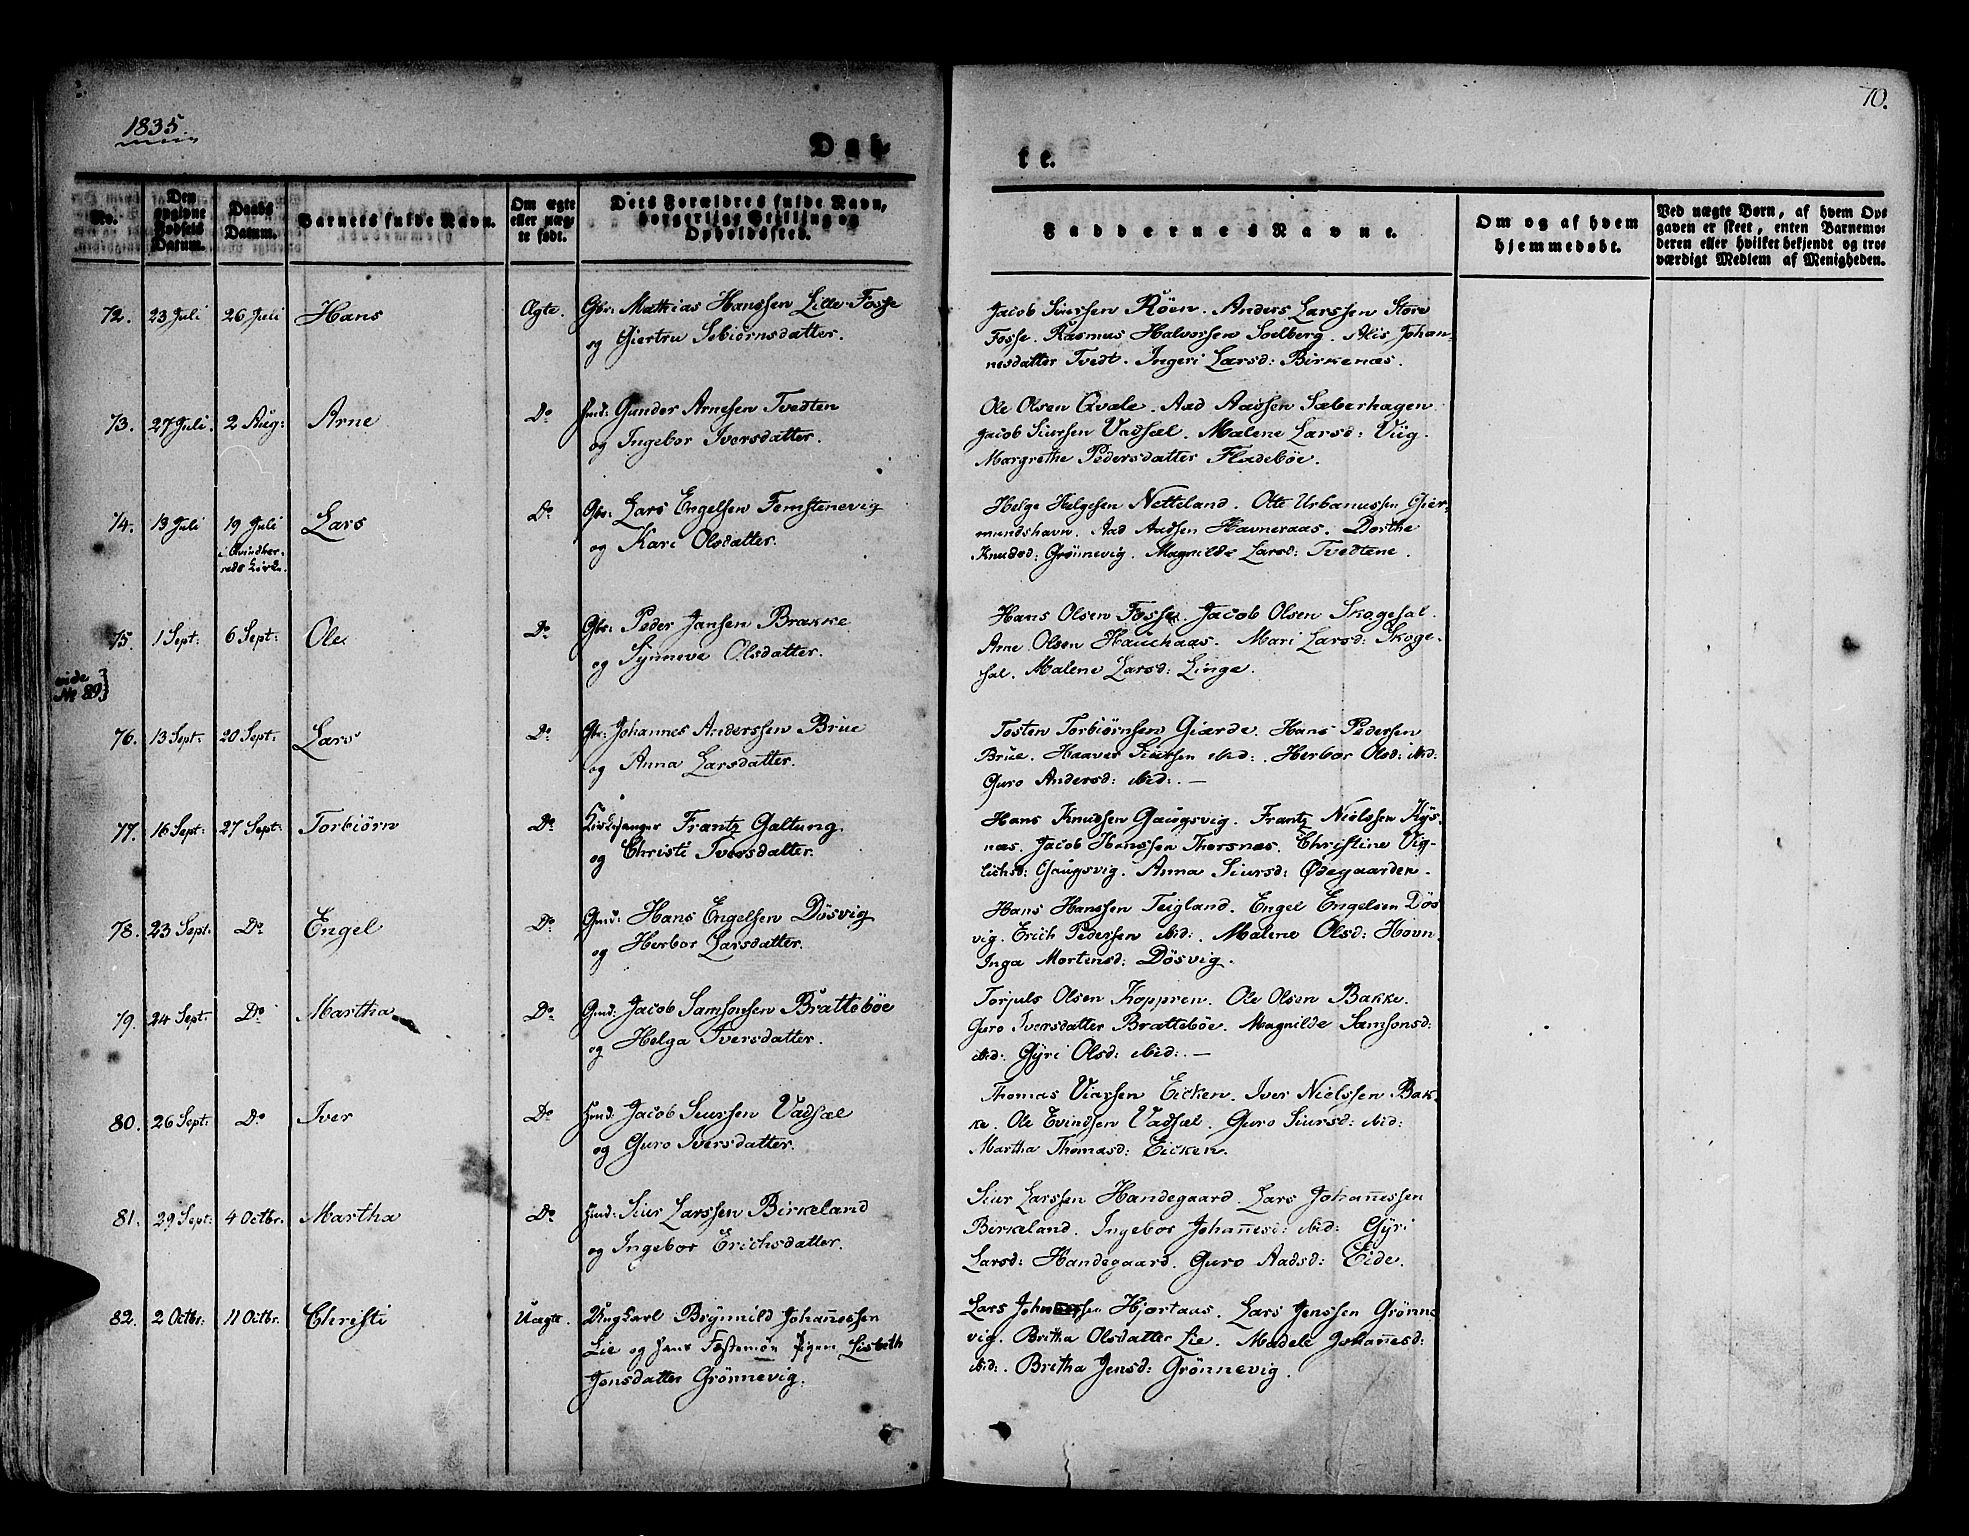 1835.
70.
Døbte.
No.
Den opgivne Fødsels Datum.
Daabs Datum.
Barnets fulde Navn.
Om ægte eller uægte født.
Dets Forældres fulde Navn, borgerlige Stilling og Opholdssted.
Faddernes Navne.
Om og af hvem hjemmedøbt.
Ved uægte Børn, af hvem Opgaven er skeet, enten Barnemoderen eller hvilket bekjendt og troværdigt Medlem af Menigheden.
72. 23 Juli 26 Juli Hans Ægte. Gbr: Mathias Hanssen Lille-Fosse
og Giertru Sebiörnsdatter.
Jacob Siurssen Röen. Anders Larssen Store
Fosse. Rasmus Halvorssen Soelberg. Alis Johan-
nesdatter Tvedt. Ingeri Larsd: Birkenæs.
73. 27 Juli. 2 Aug: Arne Do Hmd: Gunder Arnesen Tvedten
og Ingebor Iversdatter.
Ole Olsen Qvale. Aad Aadsen Sæberhagen
Jacob Siursen Vadsæl. Malene Larsd: Viig.
Margrethe Pedersdatter Fladeböe.
74. 13 Juli 19 Juli Lars Do Gbr: Lars Engelsen Femstenevig
i Qvindher-
reds Kirke.
og Kari Olsdatter.
Helge Helgesen Netteland. Otte Urbanussen Gier-
mundshavn. Aad Aadsen Havneraas. Dorthe
Knudsd: Grönnevig. Magnilde Larsd: Tvedtene.
75. 1 Sept: 6 Sept: Ole Do Gbr: Peder Jansen Brække
og Synneve Olsdatter.
Hans Olsen Fosse. Jacob Olsen Skogesal.
Arne Olsen Hauchaas. Mari Larsd: Skoge-
sal. Malene Larsd: Linge.
vide
No 89
76. 13 Sept: 20 Sept: Lars Do Gbr: Johannes Anderssen Brue
og Anna Larsdatter.
Tosten Torbiörnsen Giærde. Hans Pedersen
Brue. Haaver Siursen ibid:. Herbor Olsd: ibid:
Guro Andersd: ibid:. —
77. 16 Sept: 27 Sept: Torbiörn Do Kirkesanger Frantz Galtung
og Christi Iversdatter.
Hans Knudsen Gaugsvig. Frantz Nielssen Kys-
næs. Jacob Hanssen Thorsnæs. Christine Vig-
lichsd: Gaugsvig. Anna Siursd: Ødegaarden.
78. 23 Sept: Do Engel Do Gmd: Hans Engelsen Dösvig
og Herbor Larsdatter.
Hans Hanssen Teigland. Engel Engelsen Dös
vig. Erich Pedersen ibid:. Malene Olsd: Hovn.
Inga Mortensd: Dösvig.
79. 24 Sept: Do Martha Do Gmd: Jacob Samsonsen Bratteböe
og Helga Iversdatter.
Torjuls Olsen Koppren. Ole Olsen Bakke.
Guro Iversdatter Bratteböe. Magnilde Samsonsd:
ibid:. Gyri Olsd: ibid:. —
80. 26 Sept: Do Iver Do Hmd: Jacob Siurssen Vadsæl
og Guro Iversdatter.
Thomas Viarssen Eicken. Iver Nielssen Bak-
ke. Ole Evindsen Vadsæl. Guro Siursd: ibid:
Martha Thomasd: Eicken.
81. 29 Sept: 4 Octbr. Martha Do Hmd: Siur Larssen Birkeland
og Ingebor Erichsdatter.
Siur Larssen Handegaard. Lars Johan̄essen
Birkeland. Ingebor Johan̄esd: ibid: Gyri
Larsd: Handegaard. Guro Aadsd: Eide.
82. 2 Octbr: 11 Octbr. Christi Uægte. Ungkarl Brynnild Johan̄essen
Lie og hans Fæstemöe Pigen Lisbeth
Jonsdatter Grönnevig.
Lars Hjortaas. Lars Jenssen Grönne
vig. Britha Olsdatter Lie. Madele Johan̄esd:
ibid:. Britha Jensd: Grönnevig.